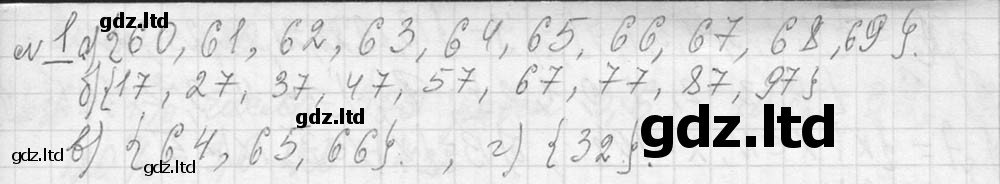 gdz.ltd
№1 а) {60, 61, 62, 63, 64, 65, 66, 67, 68, 69}.
gdz.ltd
б) {17, 27, 37, 47, 57, 67, 77, 87, 97}
gdz.ltd
gdz.ltd
в) {64, 65, 66}. , г) {32}.
gdz.ltd
gdz.ltd